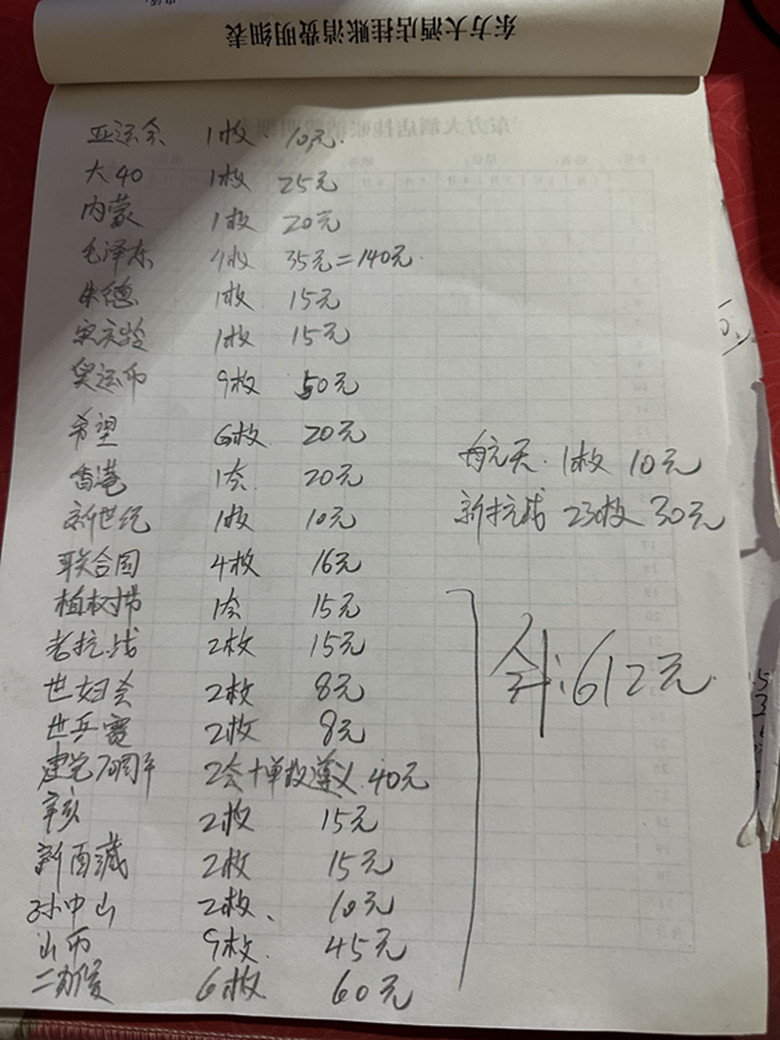 东方大酒店挂账消费明细表
亚运会 1枚 10元.
大40 1枚 25元
内蒙 1枚 20元
毛泽东 4枚 35元=140元.
朱德 1枚 15元
宋庆龄 1枚 15元
奥运币 9枚 50元
希望 6枚 20元
香港 1套 20元
新世纪 1枚 10元
联合国 4枚 16元
植树节 1套 15元
老抗战 2枚 15元
世妇会 2枚 8元
世乒赛 2枚 8元
建党70周年 2套+单枚遵义 40元
辛亥 2枚 15元
新西藏 2枚 15元
孙中山 2枚、 10元
山币 9枚. 45元
二龙 6枚 60元
航天. 1枚 10元
新抗战 23枚 30元
合计:612元.